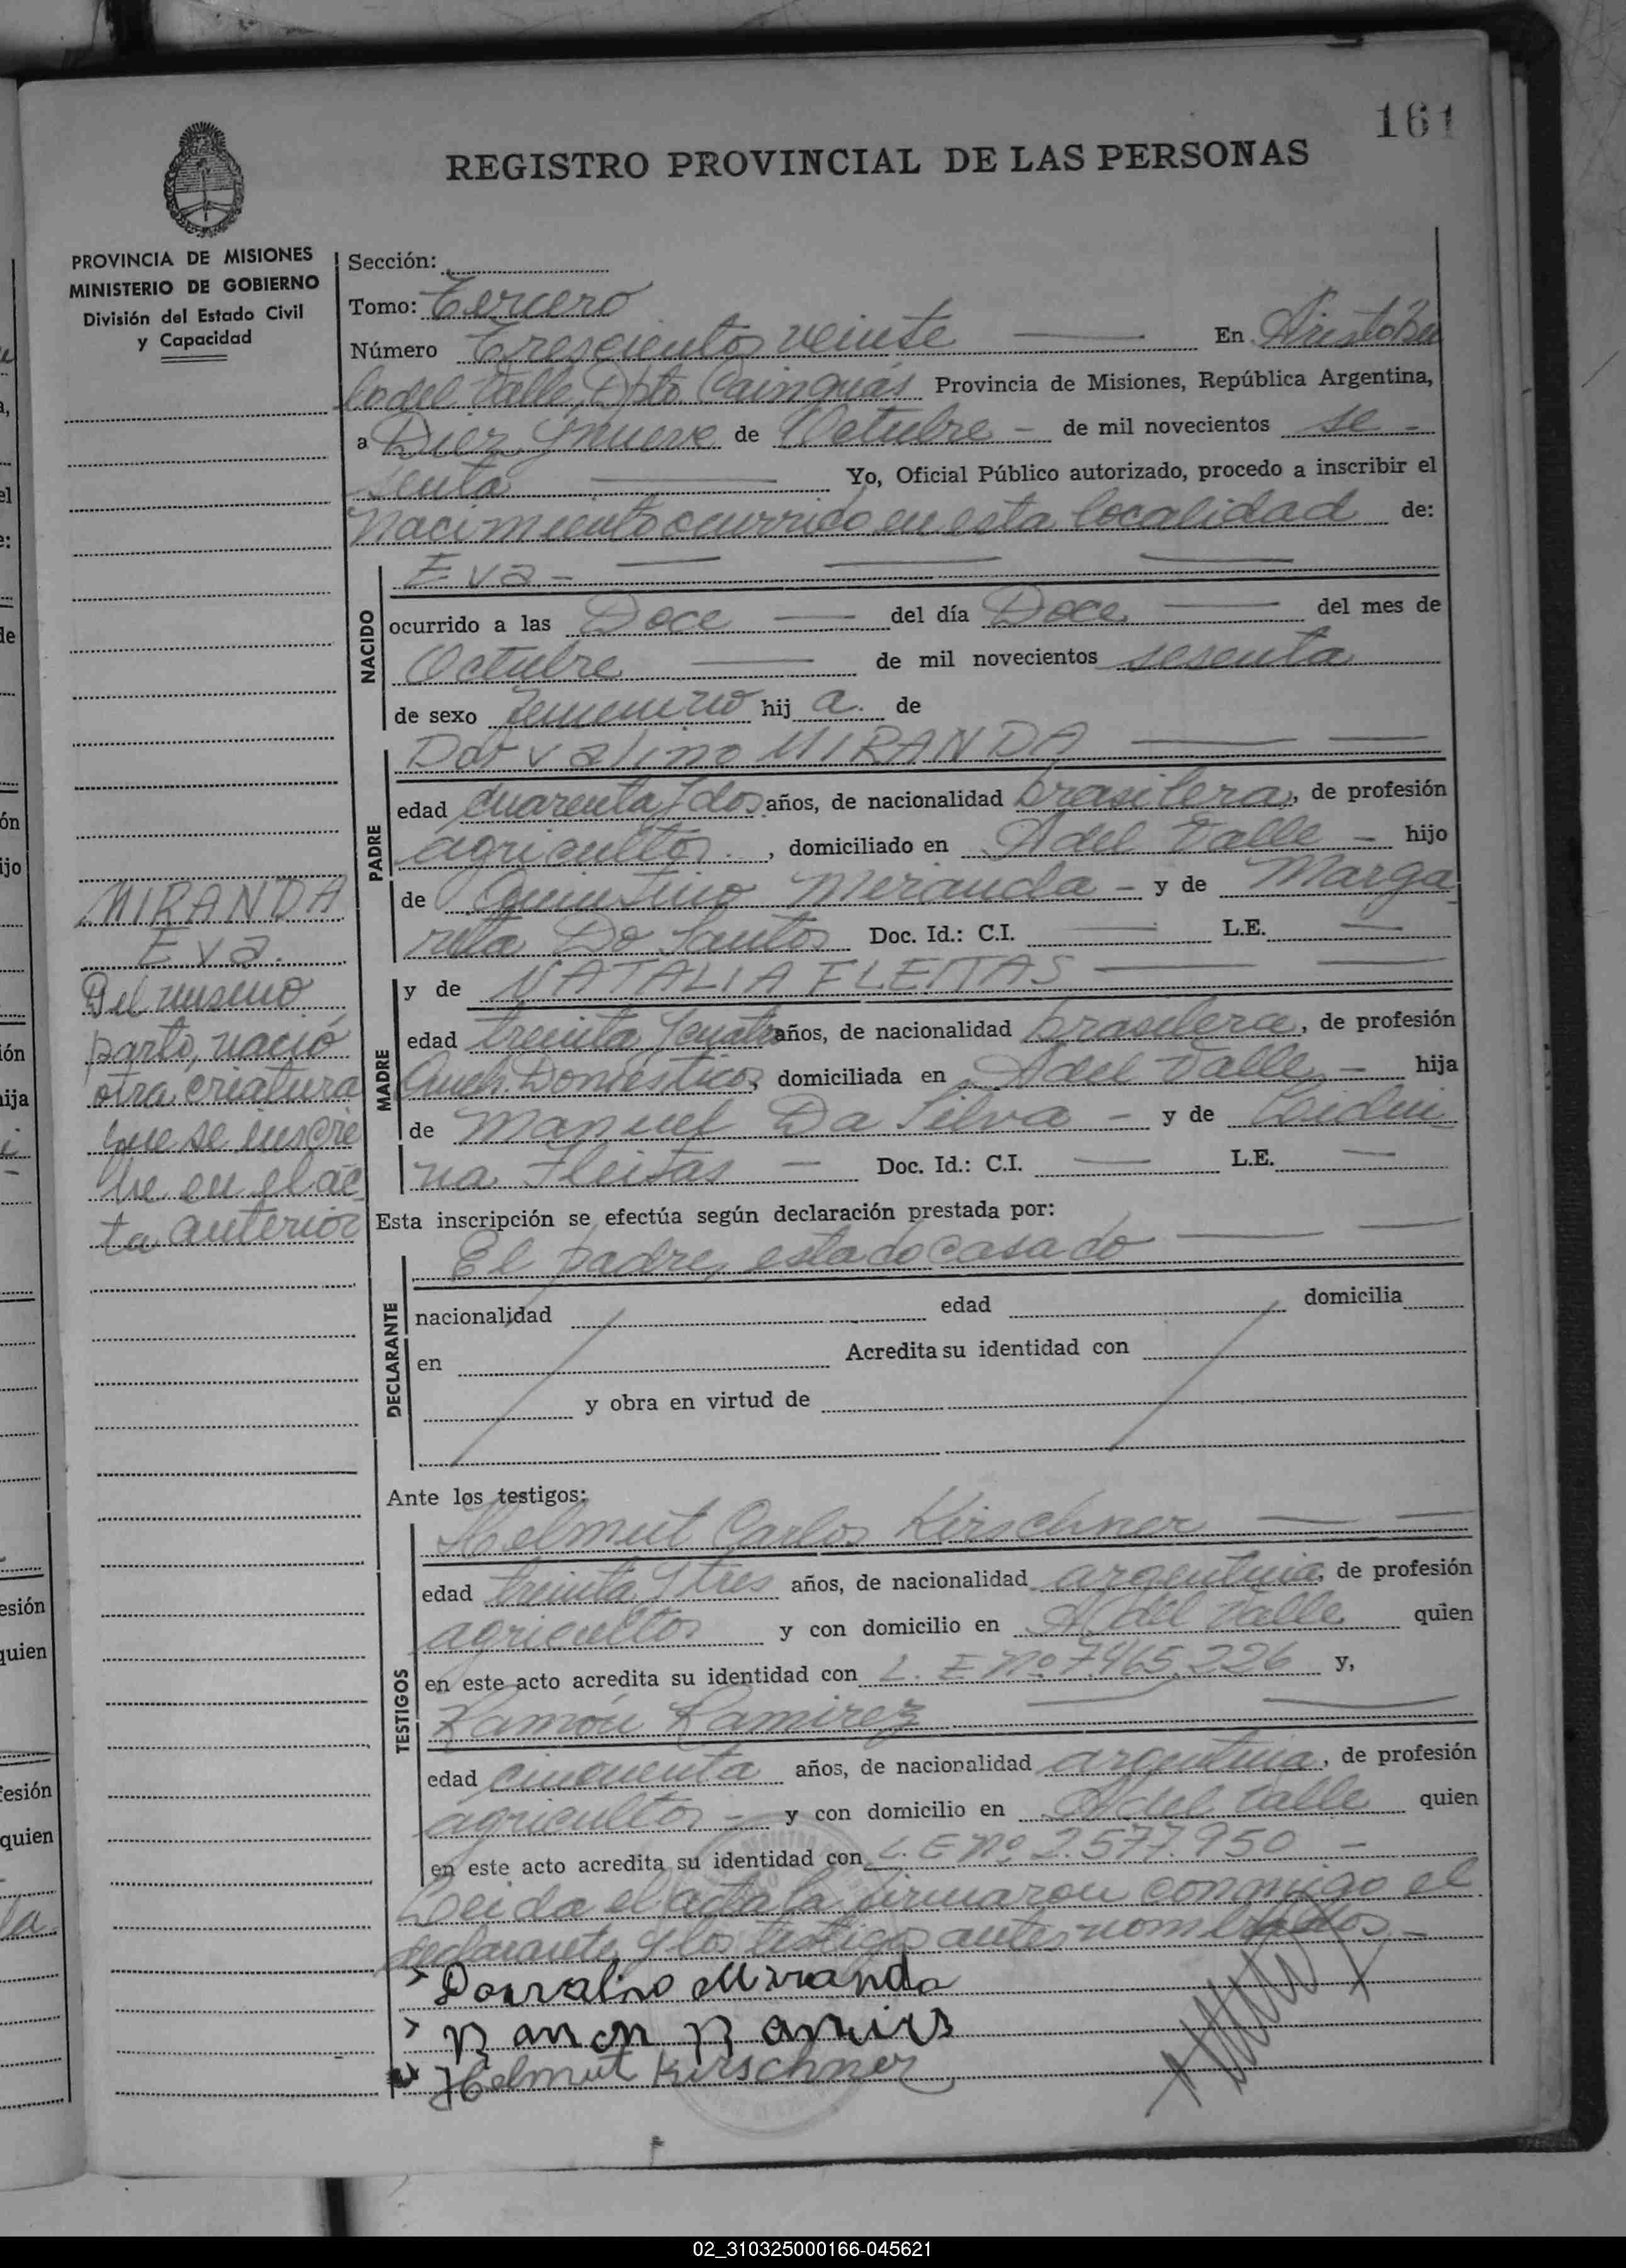 161
REGISTRO PROVINCIAL DE LAS PERSONAS
PROVINCIA DE MISIONES
MINISTERIO DE GOBIERNO
División del Estado Civil
y Capacidad
Sección:
Tomo: Tercero
Número Trescientos veinte En Aristóbu
lo del Valle, Dpto. Cainguás Provincia de Misiones, República Argentina,
a Diez y nueve de Octubre - de mil novecientos se -
senta Yo, Oficial Público autorizado, procedo a inscribir el
Nacimiento ocurrido en esta localidad de:
NACIDO
Eva -
ocurrido a las Doce del día Doce del mes de
Octubre de mil novecientos sesenta
de sexo femenino hij a. de
PADRE
Dorvalino MIRANDA
edad cuarenta y dos años, de nacionalidad brasilera, de profesión
agricultor. , domiciliado en A del Valle - hijo
de Quintino Miranda - y de Marga
rita Do Santos Doc. Id.: C.I. L.E.
MADRE
y de NATALIA FLEITAS
edad treinta y cuatro años, de nacionalidad brasilera, de profesión
Queh. Domésticos, domiciliada en A del Valle - hija
de Manuel Da Silva - y de
na Fleitas - Doc. Id.: C.I. L.E.
MIRANDA
Eva.
Del mismo
parto, nació
otra criatura
que se inscri
be en el ac
ta anterior
Esta inscripción se efectúa según declaración prestada por:
DECLARANTE
El padre, estado casado
nacionalidad edad domicilia
en Acredita su identidad con
y obra en virtud de
Ante los testigos:
TESTIGOS
Helmut Carlos Kirschner
edad treinta y tres años, de nacionalidad argentina, de profesión
agricultor y con domicilio en A del Valle quien
en este acto acredita su identidad con L. E Nº 7.465.226 y,
Ramón Ramirez
edad cincuenta años, de nacionalidad argentina, de profesión
agricultor - y con domicilio en A del Valle quien
en este acto acredita su identidad con L. E Nº 2.577.950 -
Leida el acta la firmaron conmigo el
declarante y los testigos antes nombrados -
Dorvalino Miranda
Ramon Ramires
Helmut Kirschner
02_310325000166-045621